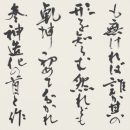 も無ければ誰か其の
形を知らむ然れども
乾坤初めて分れて
参神造化の首と作